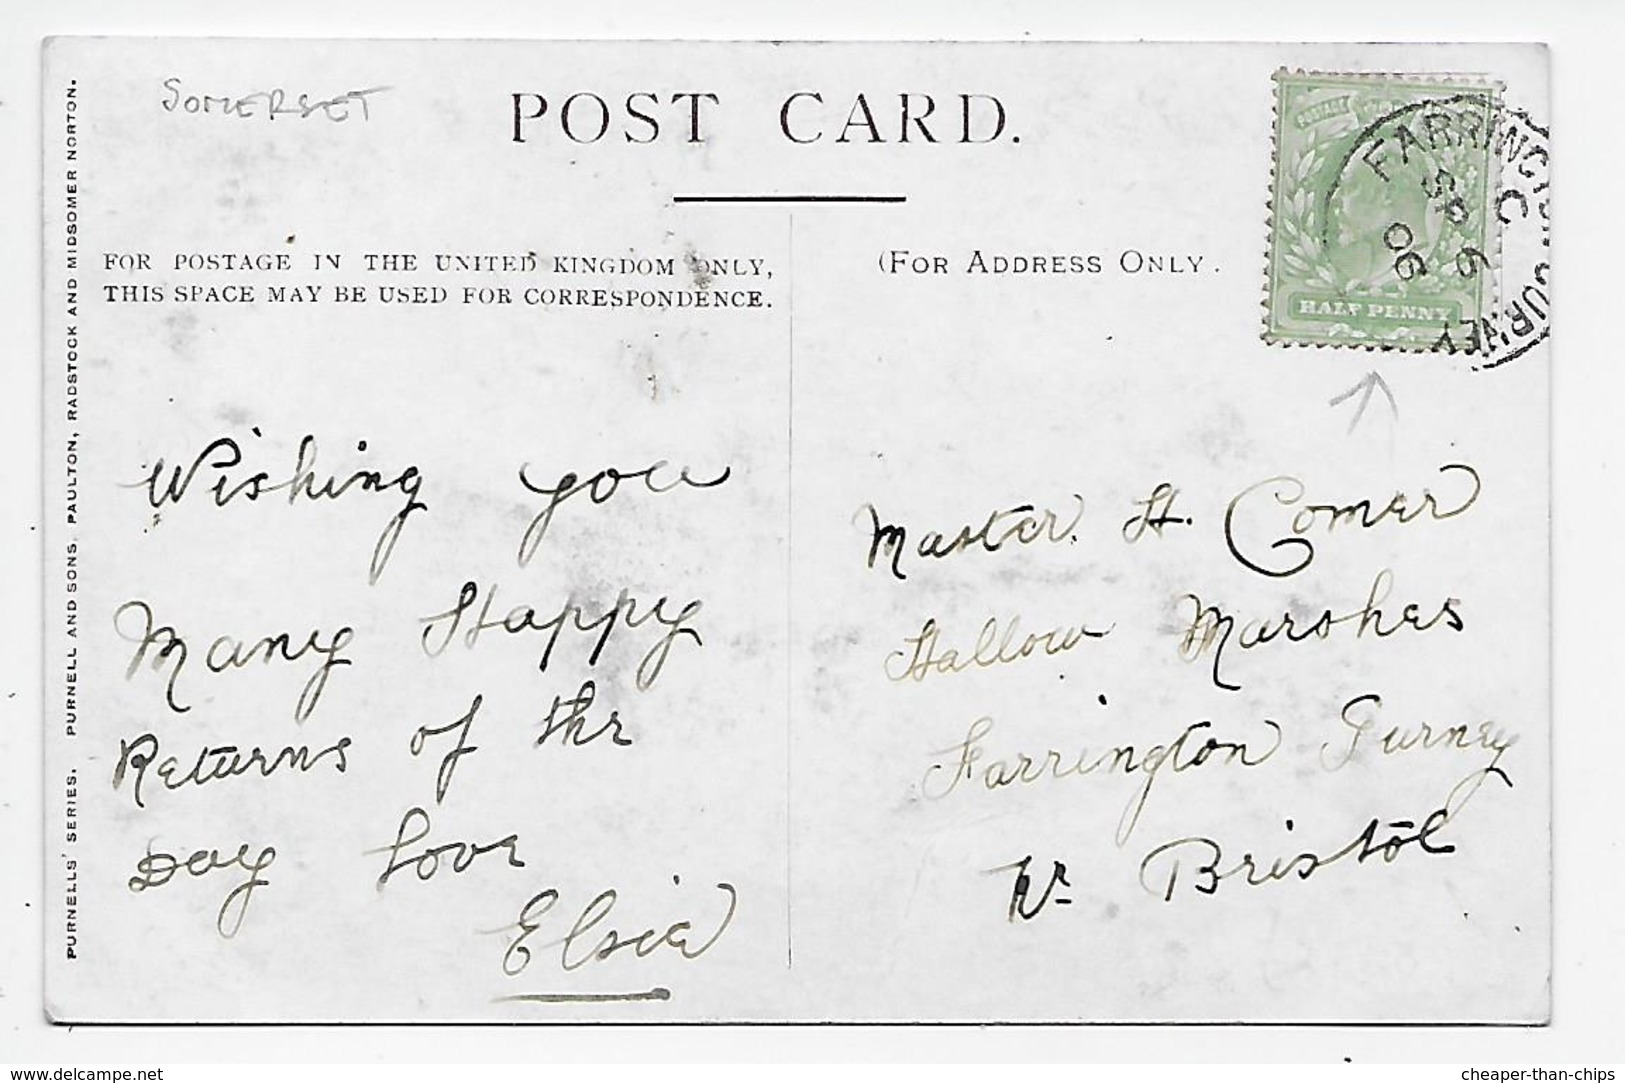 SOMERSET
POST CARD.
FOR POSTAGE IN THE UNITED KINGDOM ONLY,
THIS SPACE MAY BE USED FOR CORRESPONDENCE.
(FOR ADDRESS ONLY.
FARRINGTON GURNEY
C
SP 6
06
HALF PENNY
Wishing you
Many Happy
Returns of the
Day love
Elsie
Master. H. Comer
Hallow Marshes
Farrington Gurney
Nr Bristol
PURNELLS' SERIES. PURNELL AND SONS, PAULTON, RADSTOCK AND MIDSOMER NORTON.
www.delcampe.net
cheaper-than-chips